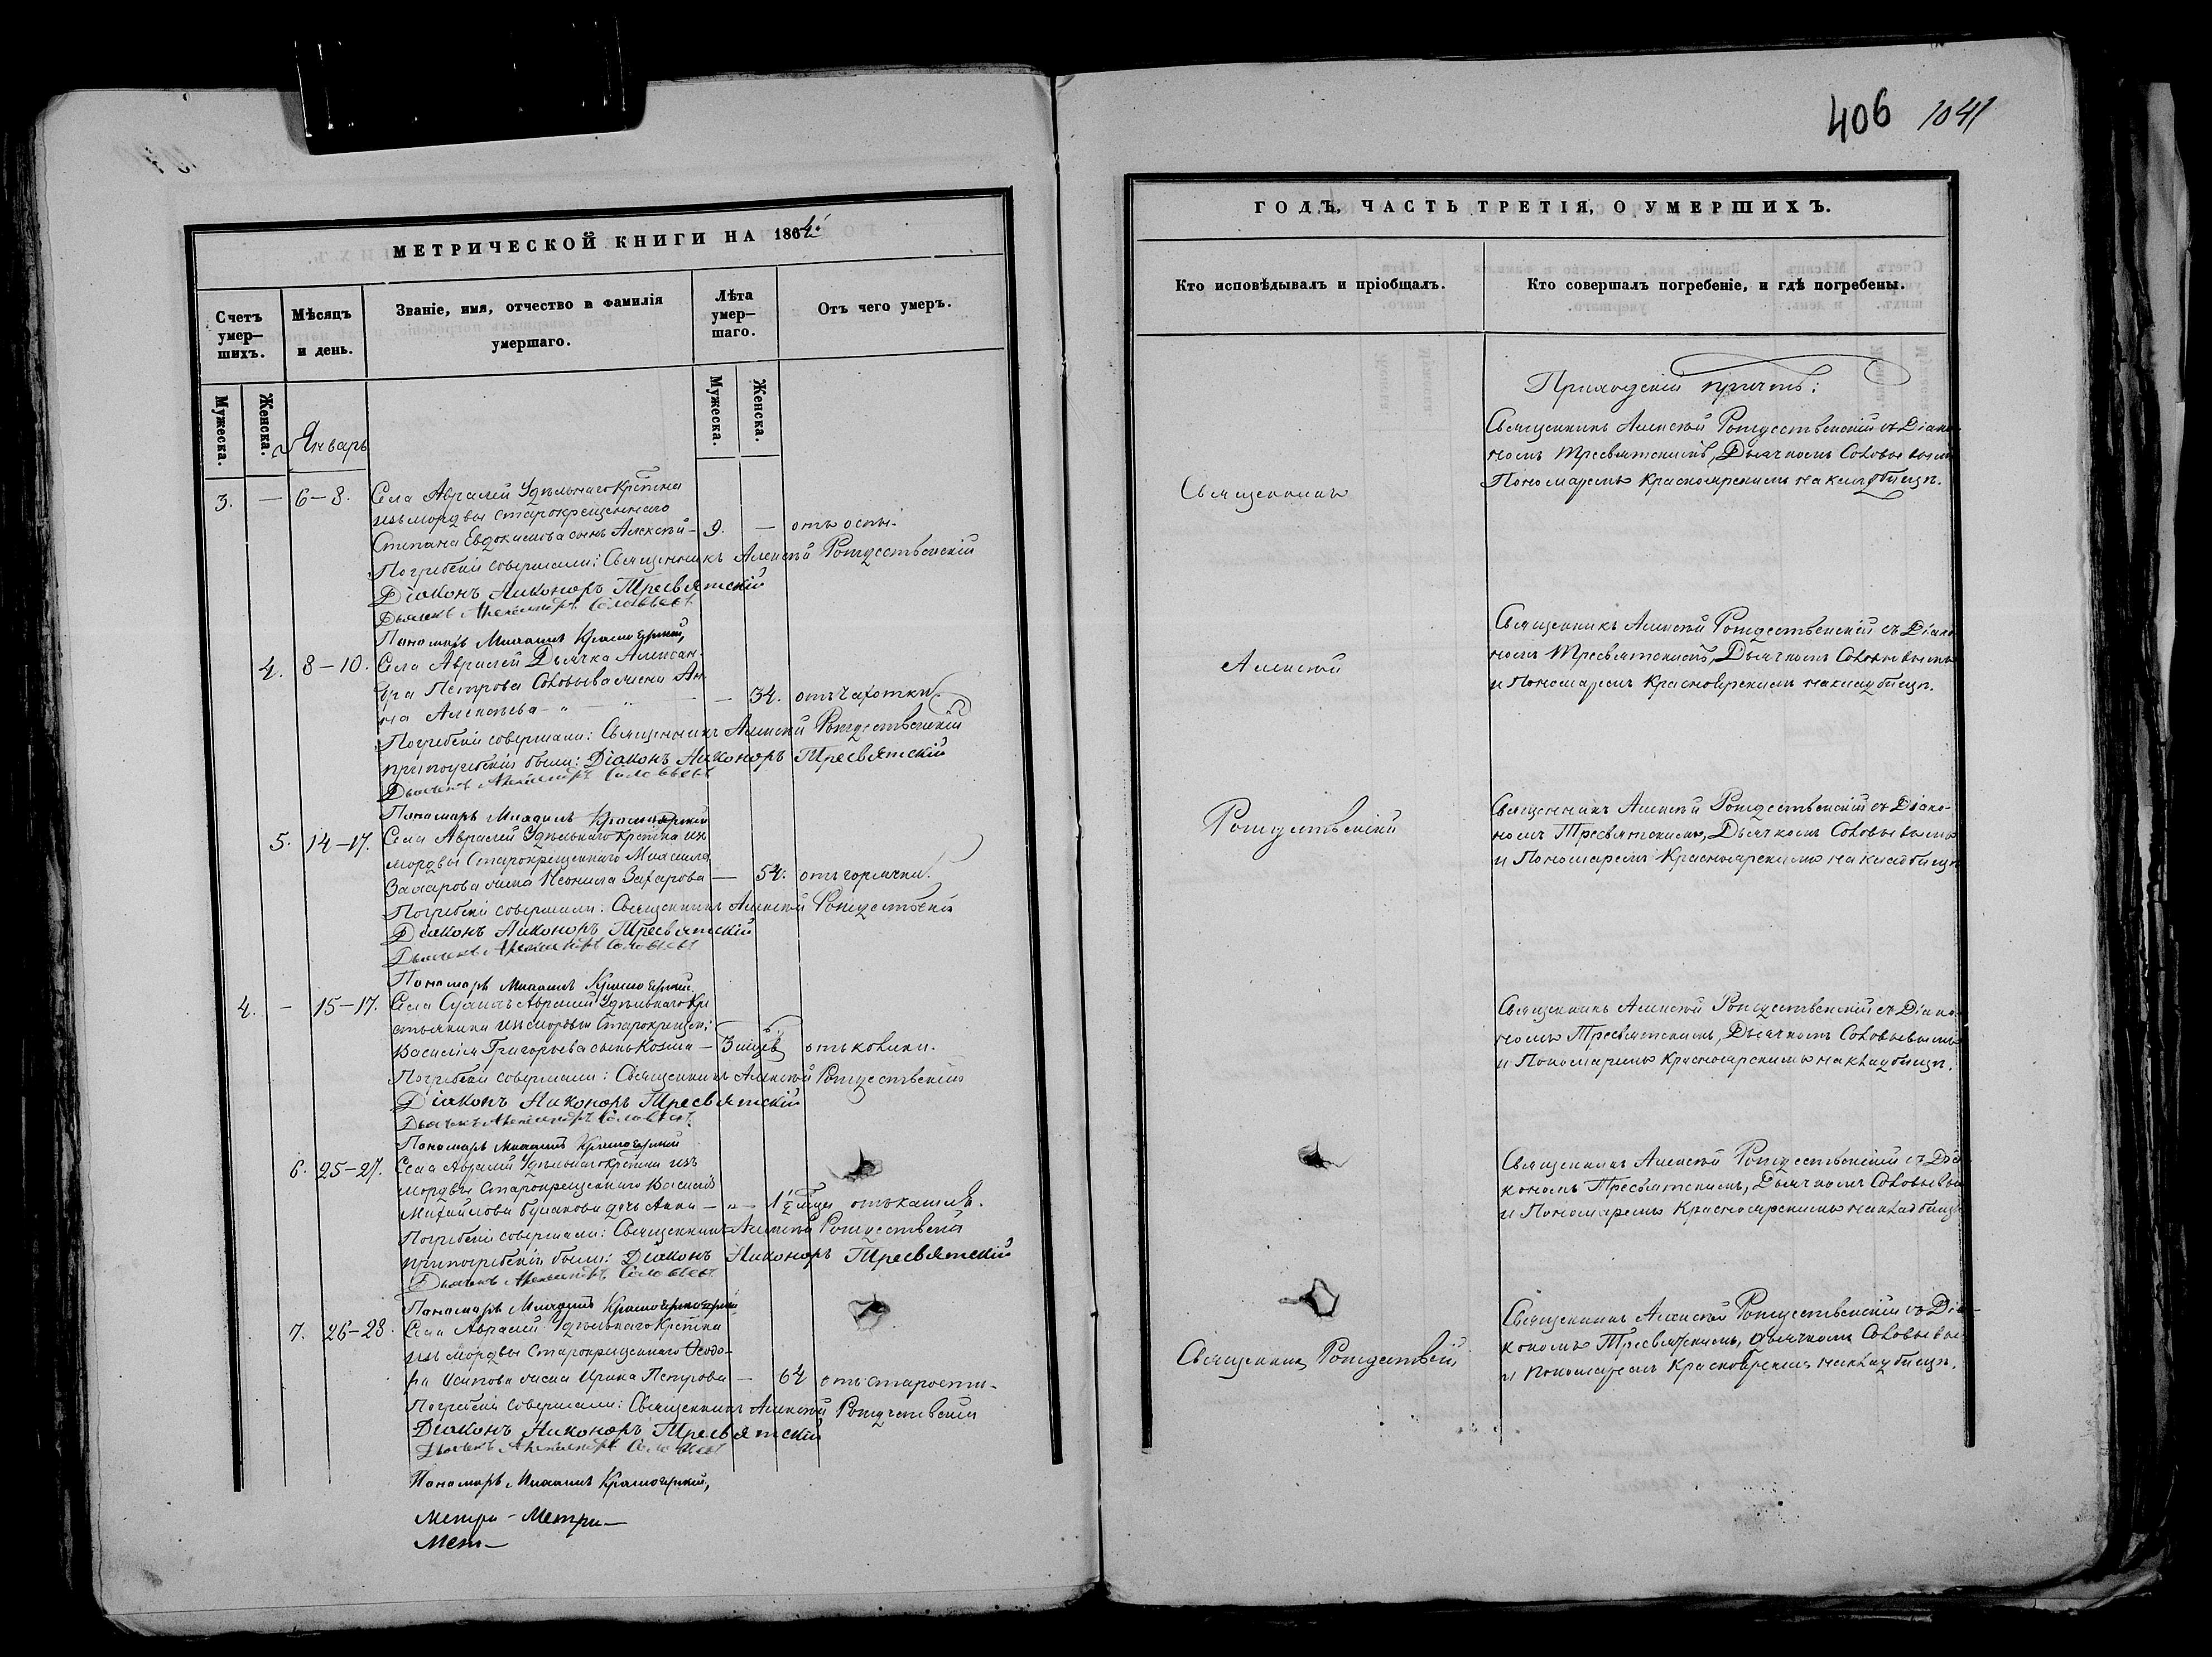 406 1041
МЕТРИЧЕСКОЙ КНИГИ НА 1864.
Счетъ умер-шихъ.
Мѣсяцъ и день.
Званіе, имя, отчество и фамилія умершаго.
Лѣта умер-шаго.
Отъ чего умеръ.
Мужеска.
Женска.
Мужеска.
Женска.
Январь
3. — 6-8. Села Авралей Удѣльнаго Крестьяна
изъ мордвы старокрещеннаго
Степана Евдокимова сынъ Алексѣй — 9. — отъ оспы.
Погребеніе совершали: Священникъ Алексѣй Рождественскій
Діаконъ Никоноръ Тресвятскій
Дьячекъ Александръ Соловьевъ
Пономарь Михаилъ Красноярскій,
4. 8-10. Села Авралей Дьячка Алексан-
дра Петрова Соловьева жена Ан-
на Алексѣева — 34. отъ чахотки.
Погребеніе совершали: Священникъ Алексѣй Рождественскій
при погребеніи были: Діаконъ Никоноръ Тресвятскій
Дьячекъ Александръ Соловьевъ
Пономарь Михаилъ Красноярскій
5. 14-17. Села Авралей Удѣльнаго крестьяна изъ
мордвы Старокрещеннаго Михаила
Захарова жена Неонила Захарова — 54. отъ горячки.
Погребеніе совершали: Священникъ Алексѣй Рождественскій
Діаконъ Никоноръ Тресвятскій
Дьячекъ Александръ Соловьевъ
Пономарь Михаилъ Красноярскій.
4. — 15-17. Села Авралей Удѣльнаго Кре
стьянина изъ мордвы Старокрещен:
Василія Григорьева сынъ Козма — 3 отъ колики.
Погребеніе совершали: Священникъ Алексѣй Рождественскій
Діаконъ Никоноръ Тресвятскій
Дьячекъ Александръ Соловьевъ.
Пономарь Михаилъ Красноярскій
6. 25-27. Села Авралей Удѣльнаго крестьяна изъ
мордвы Старокрещеннаго Василія
Михайлова дочь Анна — 1½ отъ кашля.
Погребеніе совершали: Священникъ Алексѣй Рождественскій
при погребеніи были: Діаконъ Никоноръ Тресвятскій
Дьячекъ Александръ Соловьевъ
Пономарь Михаилъ Красноярскій
7. 26-28. Села Авралей Удѣльнаго Крестьяна
изъ мордвы Старокрещеннаго Ѳеодо-
ра Осипова жена Ирина Петрова — 64 отъ старости.
Погребеніе совершали: Священникъ Алексѣй Рождественскій
Діаконъ Никоноръ Тресвятскій
Дьячекъ Александръ Соловьевъ
Пономарь Михаилъ Красноярскій,
Метри - Метри —
Мет —
ГОДЪ, ЧАСТЬ ТРЕТІЯ, О УМЕРШИХЪ.
Кто исповѣдывалъ и пріобщалъ.
Кто совершалъ погребеніе, и гдѣ погребены.
Приходскій причтъ:
Священникъ Алексѣй Рождественскій съ Діако-
номъ Тресвятскимъ, Дьячкомъ Соловьевымъ
Священникъ
Пономаремъ Красноярскимъ на кладбищѣ.
Священникъ Алексѣй Рождественскій съ Діако-
номъ Тресвятскимъ, Дьячкомъ Соловьевымъ
Алексѣй
и Пономаремъ Красноярскимъ на кладбищѣ.
Священникъ Алексѣй Рождественскій съ Діако-
Рождественскій
номъ Тресвятскимъ, Дьячкомъ Соловьевымъ
и Пономаремъ Красноярскимъ на кладбищѣ
Священникъ Алексѣй Рождественскій съ Діако-
номъ Тресвятскимъ, Дьячкомъ Соловьевымъ
и Пономаремъ Красноярскимъ на кладбищѣ.
Священникъ Алексѣй Рождественскій съ Діа-
кономъ Тресвятскимъ, Дьячкомъ Соловьевым
и Пономаремъ Красноярскимъ на кладбищѣ
Священникъ Алексѣй Рождественскій съ Діа-
кономъ Тресвятскимъ, дьячкомъ Соловьевым
Священникъ Рождественскій
и пономаремъ Красноярскимъ на кладбищѣ.